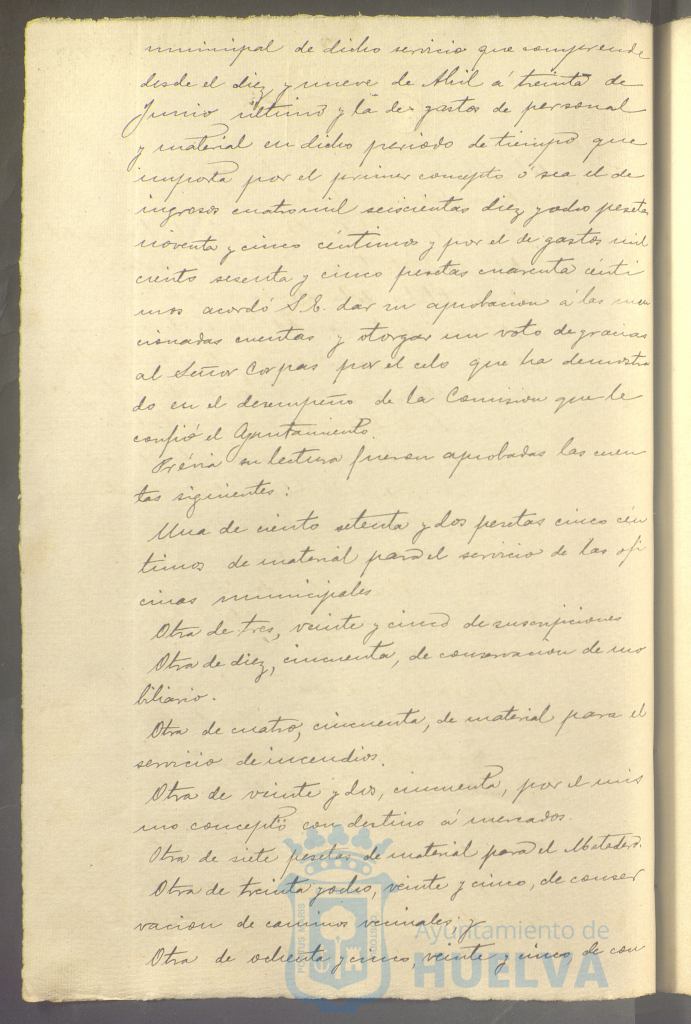 municipal de dicho servicio que comprende
desde el diez y nueve de Abil á treinta de
Junio último y la de gastos de personal
y material en dicho periodo de tiempo que
importa por el primer concepto ó sea el de
ingresos cuatro mil seiscientas diez y ocho pesetas
noventa y cinco céntimos y por el de gastos mil
ciento sesenta y cinco pesetas cuarenta cénti
mos acordó S.E. dar su aprobacion á las men
cionadas cuentas y otorgar un voto de gracias
al Señor Corpas por el celo que ha demostra
do en el desempeño de la Comision que le
confió el Ayuntamiento.
Prévia su lectura fueron aprobadas las cuen
tas siguientes:
Una de ciento setenta y dos pesetas cinco cén
timos de material para el servicio de las ofi
cinas municipales
Otra de tres, veinte y cinco de suscripciones
Otra de diez, cincuenta, de conservacion de mo
biliario.
Otra de cuatro, cincuenta, de material para el
servicio de incendios.
Otra de veinte y dos, cincuenta, por el mis
mo concepto con destino á mercados.
Otra de siete pesetas de material para el Matadero.
Otra de treinta y ocho, veinte y cinco, de conser
vacion de caminos vecinales, y
Otra de ochenta y cinco, veinte y cinco, de con
Ayuntamiento de
HUELVA